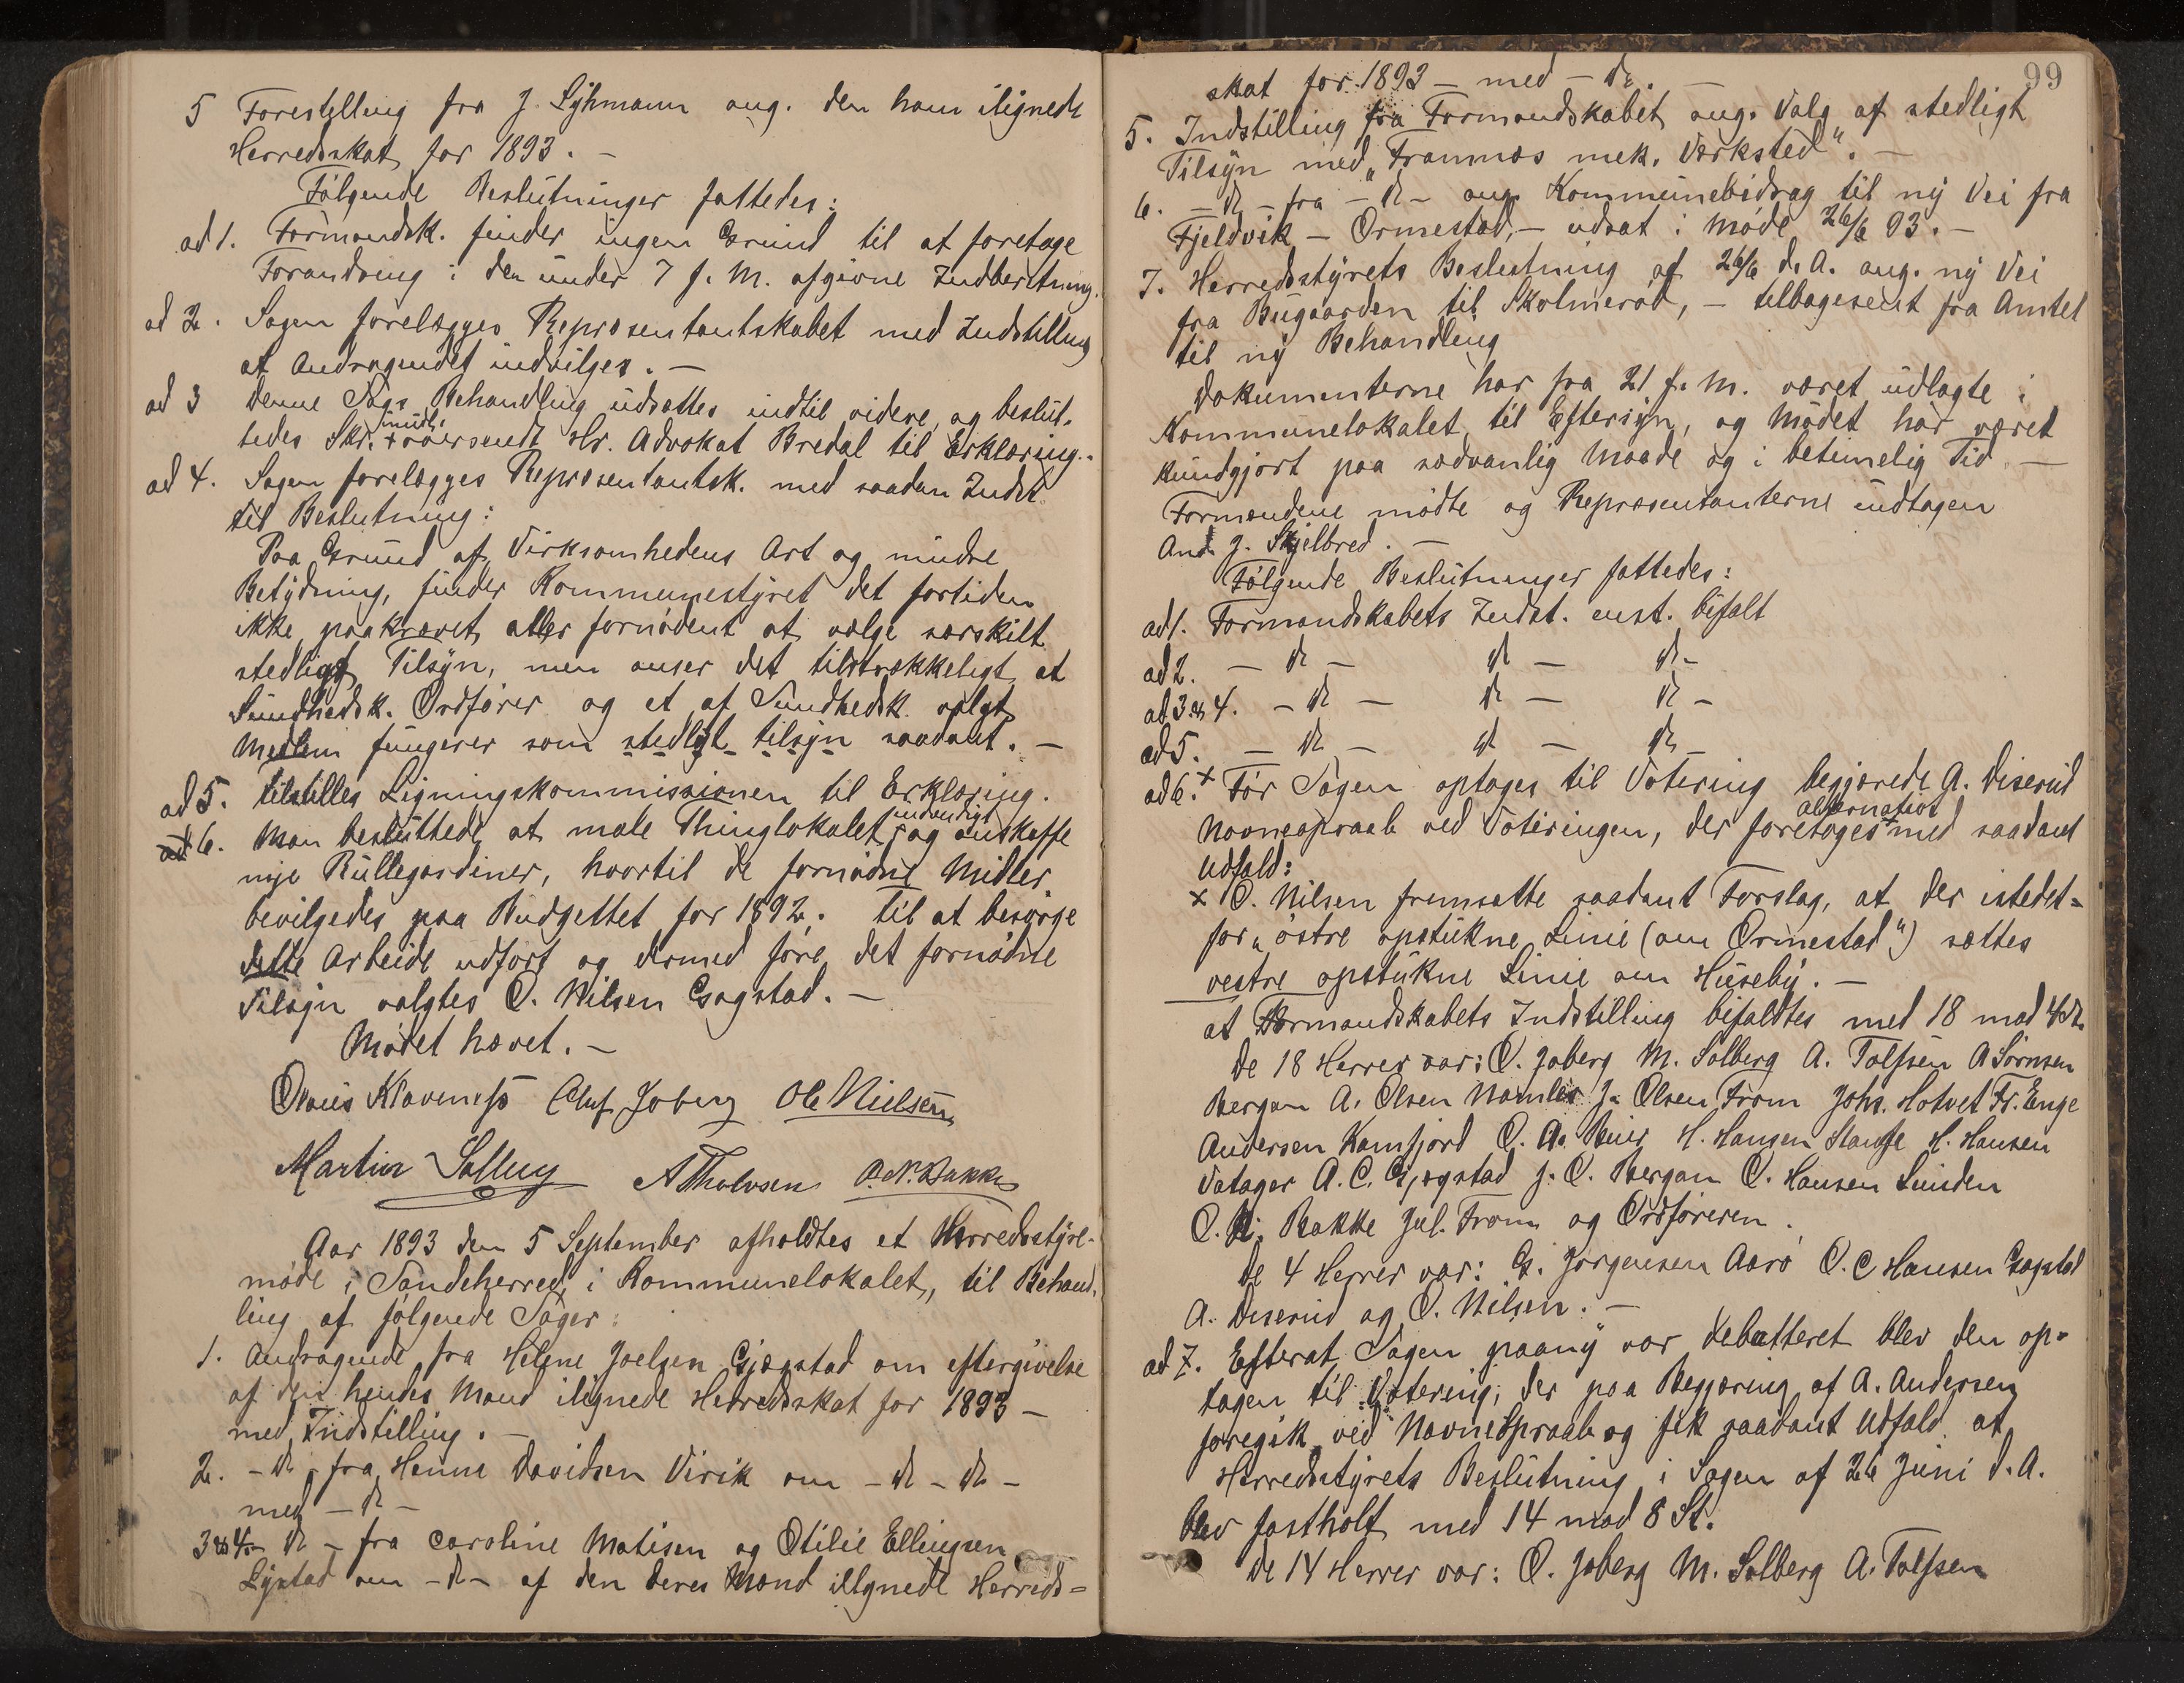 5 Forestelling fra J. Lÿhmann ang. den ham ilignede
Herredsskat for 1893. –
Følgende Beslutninger fattedes:
ad 1. Formandsk. finder ingen Grund til at foretage
Forandring i den under 7 f. M. afgivne Indberetning.
ad 2. Sagen forelægges Repræsentantskabet med Indstilling
at Andragendet indvilges. –
ad 3 Denne Sags Behandling udsættes indtil videre, og beslut-
tedes Skr. oversendt Hr. Advokat Bredal til Erklæring.
ad 4. Sagen forelægges Repræsentantsk. med saadan Indst.
til Beslutning:
Paa Grund af Virksomhedens Art og mindre
Betydning, finder Kommunestyret det fortiden
ikke paakrævet eller fornødent at vælge særskilt
stedligt Tilsyn, men anser det tilstrækkeligt at
Sundhedsk. Ordfører og et af Sundhedsk. valgt
Medlem fungerer som stedligt tilsyn saadant. –
ad 5. Tilstilles Ligningskommissionen til Erklæring.
ad 6. Man besluttede at male Thinglokalet indvendigt og anskaffe
nye Rullegardiner, hvortil de fornødne Midler
bevilgedes paa Budgettet for 1892. Til at besørge
dette Arbeide udført og dermed føre det fornødne
Tilsyn valgtes O. Nilsen Gogstad. –
Mødet hævet. –
Olaus Klaveness Chr. Joberg Ole Nielsen
Martin Solberg A Tholvsen O. N. Bakke
Aar 1893 den 5 September afholdtes et Herredsstyre-
møde i Sandeherred, i Kommunelokalet, til Behand-
ling af følgende Sager:
1. Andragende fra Helene Joelsen Gjøgstad om eftergivelse
af den hendes Mand ilignede Herredsskat for 1893 –
med Indstilling. –
2. – do – fra Henne Davidsen Virik om – do – do –
med – do –
3 og 4 – do – fra Caroline Matisen og Otilie Ellingsen
Lystad om – do – af den deres Mænd ilignede Herreds=
99
skat for 1893 – med – do. –
5. Indstilling fra Formandskabet ang. Valg af stedligt
Tilsyn med „Framnæs mek. Værksted“. –
6. – do – fra – do – ang. Kommunebidrag til ny Vei fra
Fjeldvik – Ormestad, – udsat i Møde 26/6 93. –
7. Herredsstyrets Beslutning af 26/6 d. A. ang. ny Vei
fra Bugaarden til Skolmerød, – tilbagesent fra Amtet
til ny Behandling
Dokumenterne har fra 21 f. M. været udlagte i
Kommunelokalet til Eftersyn, og Mødet har været
kundgjort paa sædvanlig Maade og i betimelig Tid –
Formændene mødte og Repræsentanterne undtagen
And. J. Skjelbred. –
Følgende Beslutninger fattedes:
ad 1. Formandskabets Indst. enst. bifalt
ad 2. – do – do – do –
ad 3 og 4. – do – do – do –
ad 5. – do – do – do –
ad 6. x Før Sagen optages til Votering begjærede A. Diserud
Navneopraab ved Voteringen, der foretoges alternativt med saadant
Udfald:
x O. Nilsen fremsatte saadant Forslag, at der istedet=
for „østre opstukne Linie (om Ormestad“) sættes
vestre opstukne Linie om Huseby. –
at Formandskabets Indstilling bifaldtes med 18 mod 4 St.
De 18 Herrer var: O. Joberg M. Solberg A. Tolfsen A Sørnsen
Bergan A. Olsen Namløs J. Olsen Fram Johs. Hotvet Fr. Enge
Andersen Kamfjord O. A. Reier H. Hansen Haufe H. Hansen
Vatager A. C. Gjøgstad J. O. Bergan O. Hansen Lunden
O. N. Bakke Jul. Fram og Ordføreren.
De 4 Herrer var: G. Jørgensen Aarø O. C Hansen Gogstad
A. Diserud og O. Nilsen. –
ad 7. Efterat Sagen paany var debatteret blev den op-
tagen til Votering, der paa Begjæring af A. Andersen
foregik ved Navneopraab og fik saadant Udfald at
Herredsstyrets Beslutning i Sagen af 26 Juni d. A.
blev fastholt med 14 mod 8 St.
De 14 Herrer var: O. Joberg M. Solberg A. Tolfsen